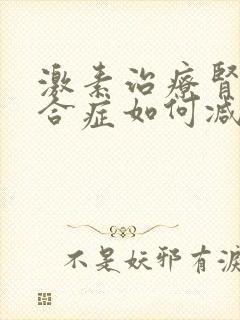 激素治疗肾
合症如何减
不是妖邪有涙